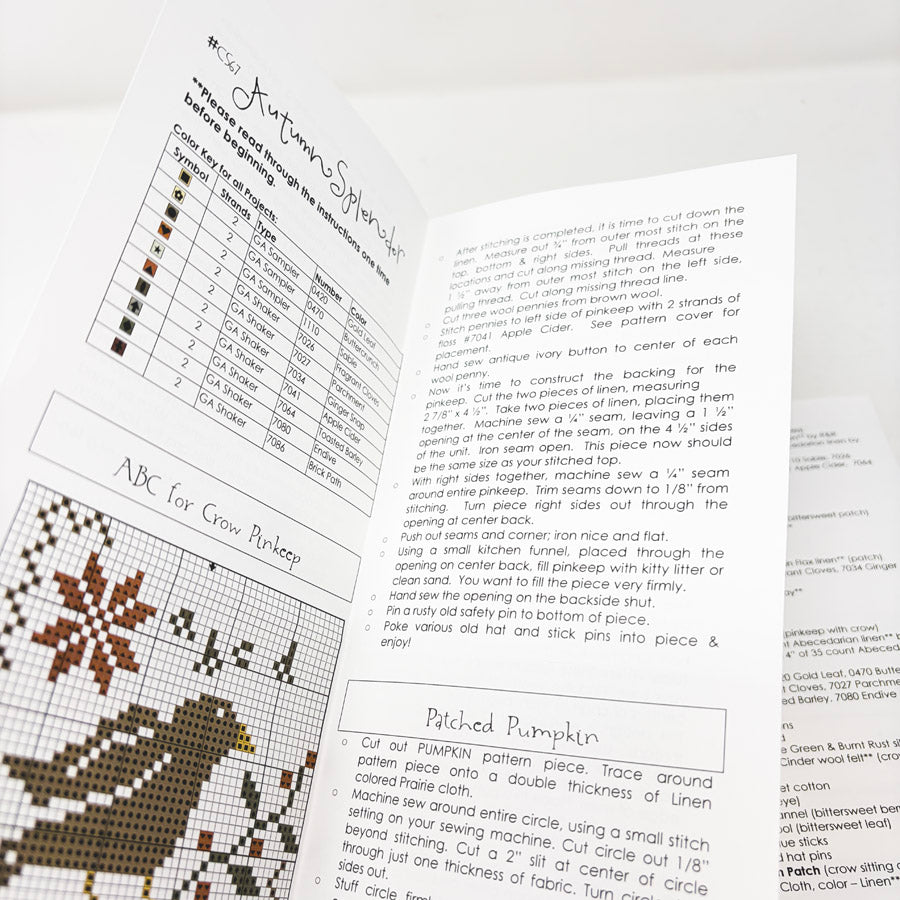 #CS67
Autumn Splendor
**Please read through the instructions one time
before beginning.
Color Key for all Projects:
Symbol Strands Type Number Color
2 GA Sampler 0420 Gold Leaf
2 GA Sampler 0470 Buttercrunch
2 GA Sampler 1110 Sable
2 GA Shaker 7026 Fragrant Cloves
2 GA Shaker 7027 Parchment
2 GA Shaker 7034 Ginger Snap
2 GA Shaker 7041 Apple Cider
2 GA Shaker 7064 Toasted Barley
2 GA Shaker 7080 Endive
2 GA Shaker 7086 Brick Path
ABC for Crow Pinkeep
○ After stitching is completed, it is time to cut down the
linen. Measure out ¾" from outer most stitch on the
top, bottom & right sides. Pull threads at these
locations and cut along missing thread. Measure
1 ½" away from outer most stitch on the left side,
pulling thread. Cut along missing thread line.
○ Cut three wool pennies from brown wool.
○ Stitch pennies to left side of pinkeep with 2 strands of
floss #7041 Apple Cider. See pattern cover for
placement.
○ Hand sew antique ivory button to center of each
wool penny.
○ Now it's time to construct the backing for the
pinkeep. Cut the two pieces of linen, measuring
2 7/8" x 4 ½". Take two pieces of linen, placing them
together. Machine sew a ¼" seam, leaving a 1 ½"
opening at the center of the seam, on the 4 ½" sides
of the unit. Iron seam open. This piece now should
be the same size as your stitched top.
○ With right sides together, machine sew a ¼" seam
around entire pinkeep. Trim seams down to 1/8" from
stitching. Turn piece right sides out through the
opening at center back.
○ Push out seams and corner; iron nice and flat.
○ Using a small kitchen funnel, placed through the
opening on center back, fill pinkeep with kitty litter or
clean sand. You want to fill the piece very firmly.
○ Hand sew the opening on the backside shut.
○ Pin a rusty old safety pin to bottom of piece.
○ Poke various old hat and stick pins into piece &
enjoy!
Patched Pumpkin
○ Cut out PUMPKIN pattern piece. Trace around
pattern piece onto a double thickness of Linen
colored Prairie cloth.
○ Machine sew around entire circle, using a small stitch
setting on your sewing machine. Cut circle out 1/8"
beyond stitching. Cut a 2" slit at center of circle
through just one thickness of fabric. Turn circle
sides out.
○ Stuff circle
by R&R
linen by
Sable, 7026
Apple Cider, 7064
(bittersweet patch)
Flax linen** (patch)
Cloves, 7034 Ginger
(pinkeep with crow)
Abecedarian linen**
4" of 35 count
Gold Leaf, 0470
Cloves, 7027
Barley, 7080 Endive
Green & Burnt Rust
Cinder wool felt**
cotton
(bittersweet
(bittersweet leaf)
sticks
hat pins
Patch (crow sitting
Cloth, color – Linen**